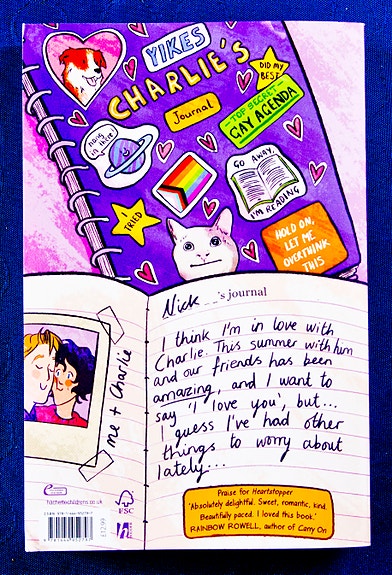 YIKES
CHARLIE'S
Journal
DID MY
BEST
TOP SECRET
GAY AGENDA
hang
in there
GO AWAY,
I'M READING
I
TRIED
HOLD ON,
LET ME
OVERTHINK
THIS
Nick 's journal
I think I'm in love with
Charlie. This summer with him
and our friends has been
amazing, and I want to
say 'I love you', but...
I guess I've had other
things to worry about
lately...
me + Charlie
Praise for Heartstopper
'Absolutely delightful. Sweet, romantic, kind.
Beautifully paced. I loved this book.'
RAINBOW ROWELL, author of Carry On
FSC
h
£12.99